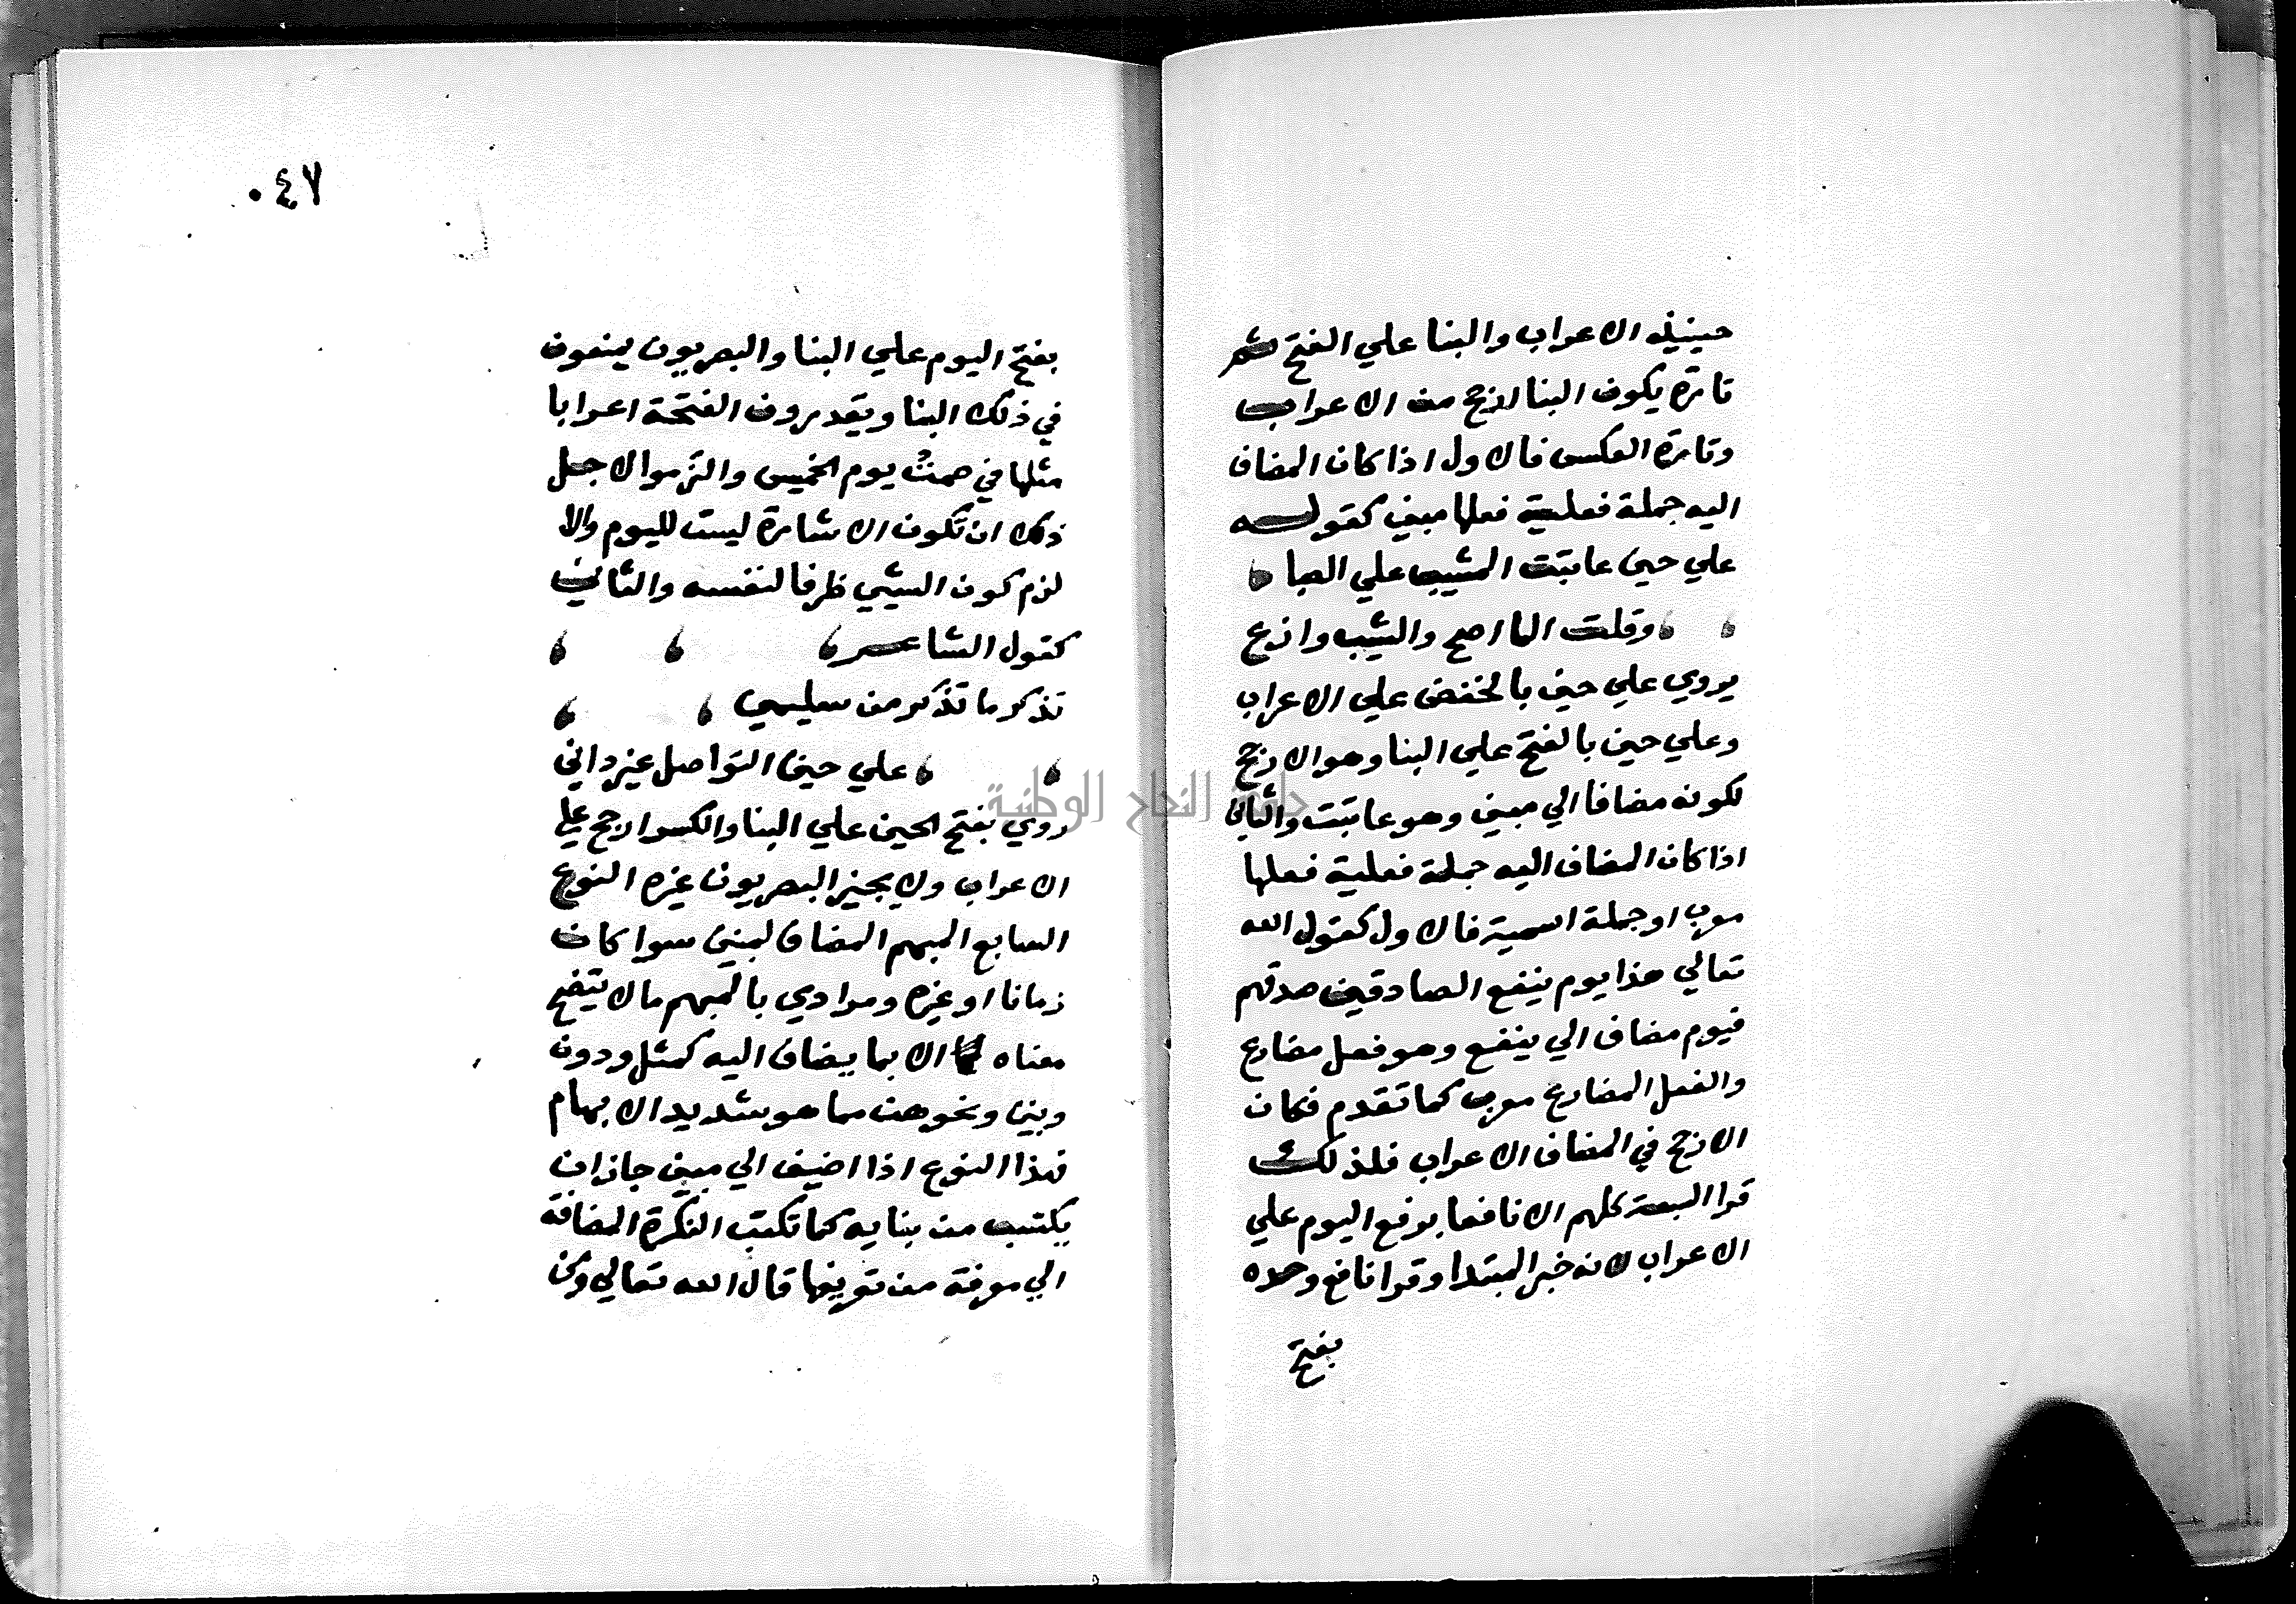 حينيذ الاعراب والبنا علي الفتح ثم
تارة يكون البنا ارجح من الاعراب
وتارة العكس فالاول اذا كان المضاف
اليه جملة فعلية فعلها مبني كقوله
علي حين عاتبت المشيب علي الصبا
وقلت الما اصح والشيب وازع
يروي علي حين بالخفض علي الاعراب
وعلي حين بالفتح علي البنا وهو الارجح
لكونه مضافا الي مبني وهو عاتبت والثاني
اذا كان المضاف اليه جملة فعلية فعلها
معرب او جملة اسمية فالاول كقول الله
تعالي هذا يوم ينفع الصادقين صدقهم
فيوم مضاف الي ينفع وهو فعل مضارع
والفعل المضارع معرب كما تقدم فكان
الارجح في المضاف الاعراب فلذلك
قرا السبعة كلهم الا نافعا برفع اليوم علي
الاعراب لانه خبر المبتدا وقرا نافع وحده
بفتح
٠٤٧
بفتح اليوم علي البنا والبصريون يمنعون
في ذلك البنا ويقدرون الفتحة اعرابا
مثلها في صمت يوم الخميس والتزموا لاجل
ذلك ان تكون الاشارة ليست لليوم والا
لزم كون الشيي ظرفا لنفسه والثاني
كقول الشاعر
تذكر ما تذكر من سليمي
علي حين التواصل غير داني
روي بفتح الحين علي البنا والكسر ارجح علي
الاعراب ولا يجيز البصريون غيره النوع
السابع المبهم المضاف لمبني سوا كان
زمانا او غيره ومرادي بالمبهم ما لا يتضح
معناه الا بما يضاف اليه كمثل ودون
وبين ونحوهن مما هو شديد الابهام
فهذا النوع اذا اضيف الي مبني جاز ان
يكتسب من بنايه كما تكتسب النكرة المضافة
الي معرفة من تعريفها قال الله تعالي ومن
جامعة النجاح الوطنية